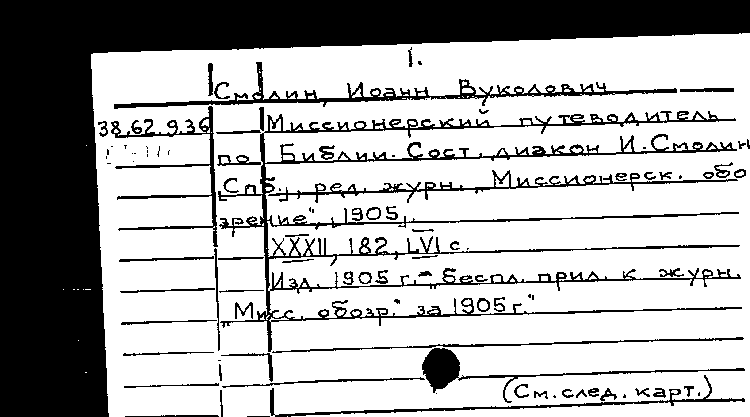 1.
Смолин, Иоанн Вуколович
38.62.9.36 Миссионерский путеводитель
по Библии. Сост. диакон И. Смолин
[Спб.], ред. журн. „Миссионерск. обо
зрение", [1905].
XXXII, 182, LVI с.
Изд. 1905 г. - „беспл. прил. к журн.
„Мисс. обозр." за 1905 г."
(См. след. карт.)